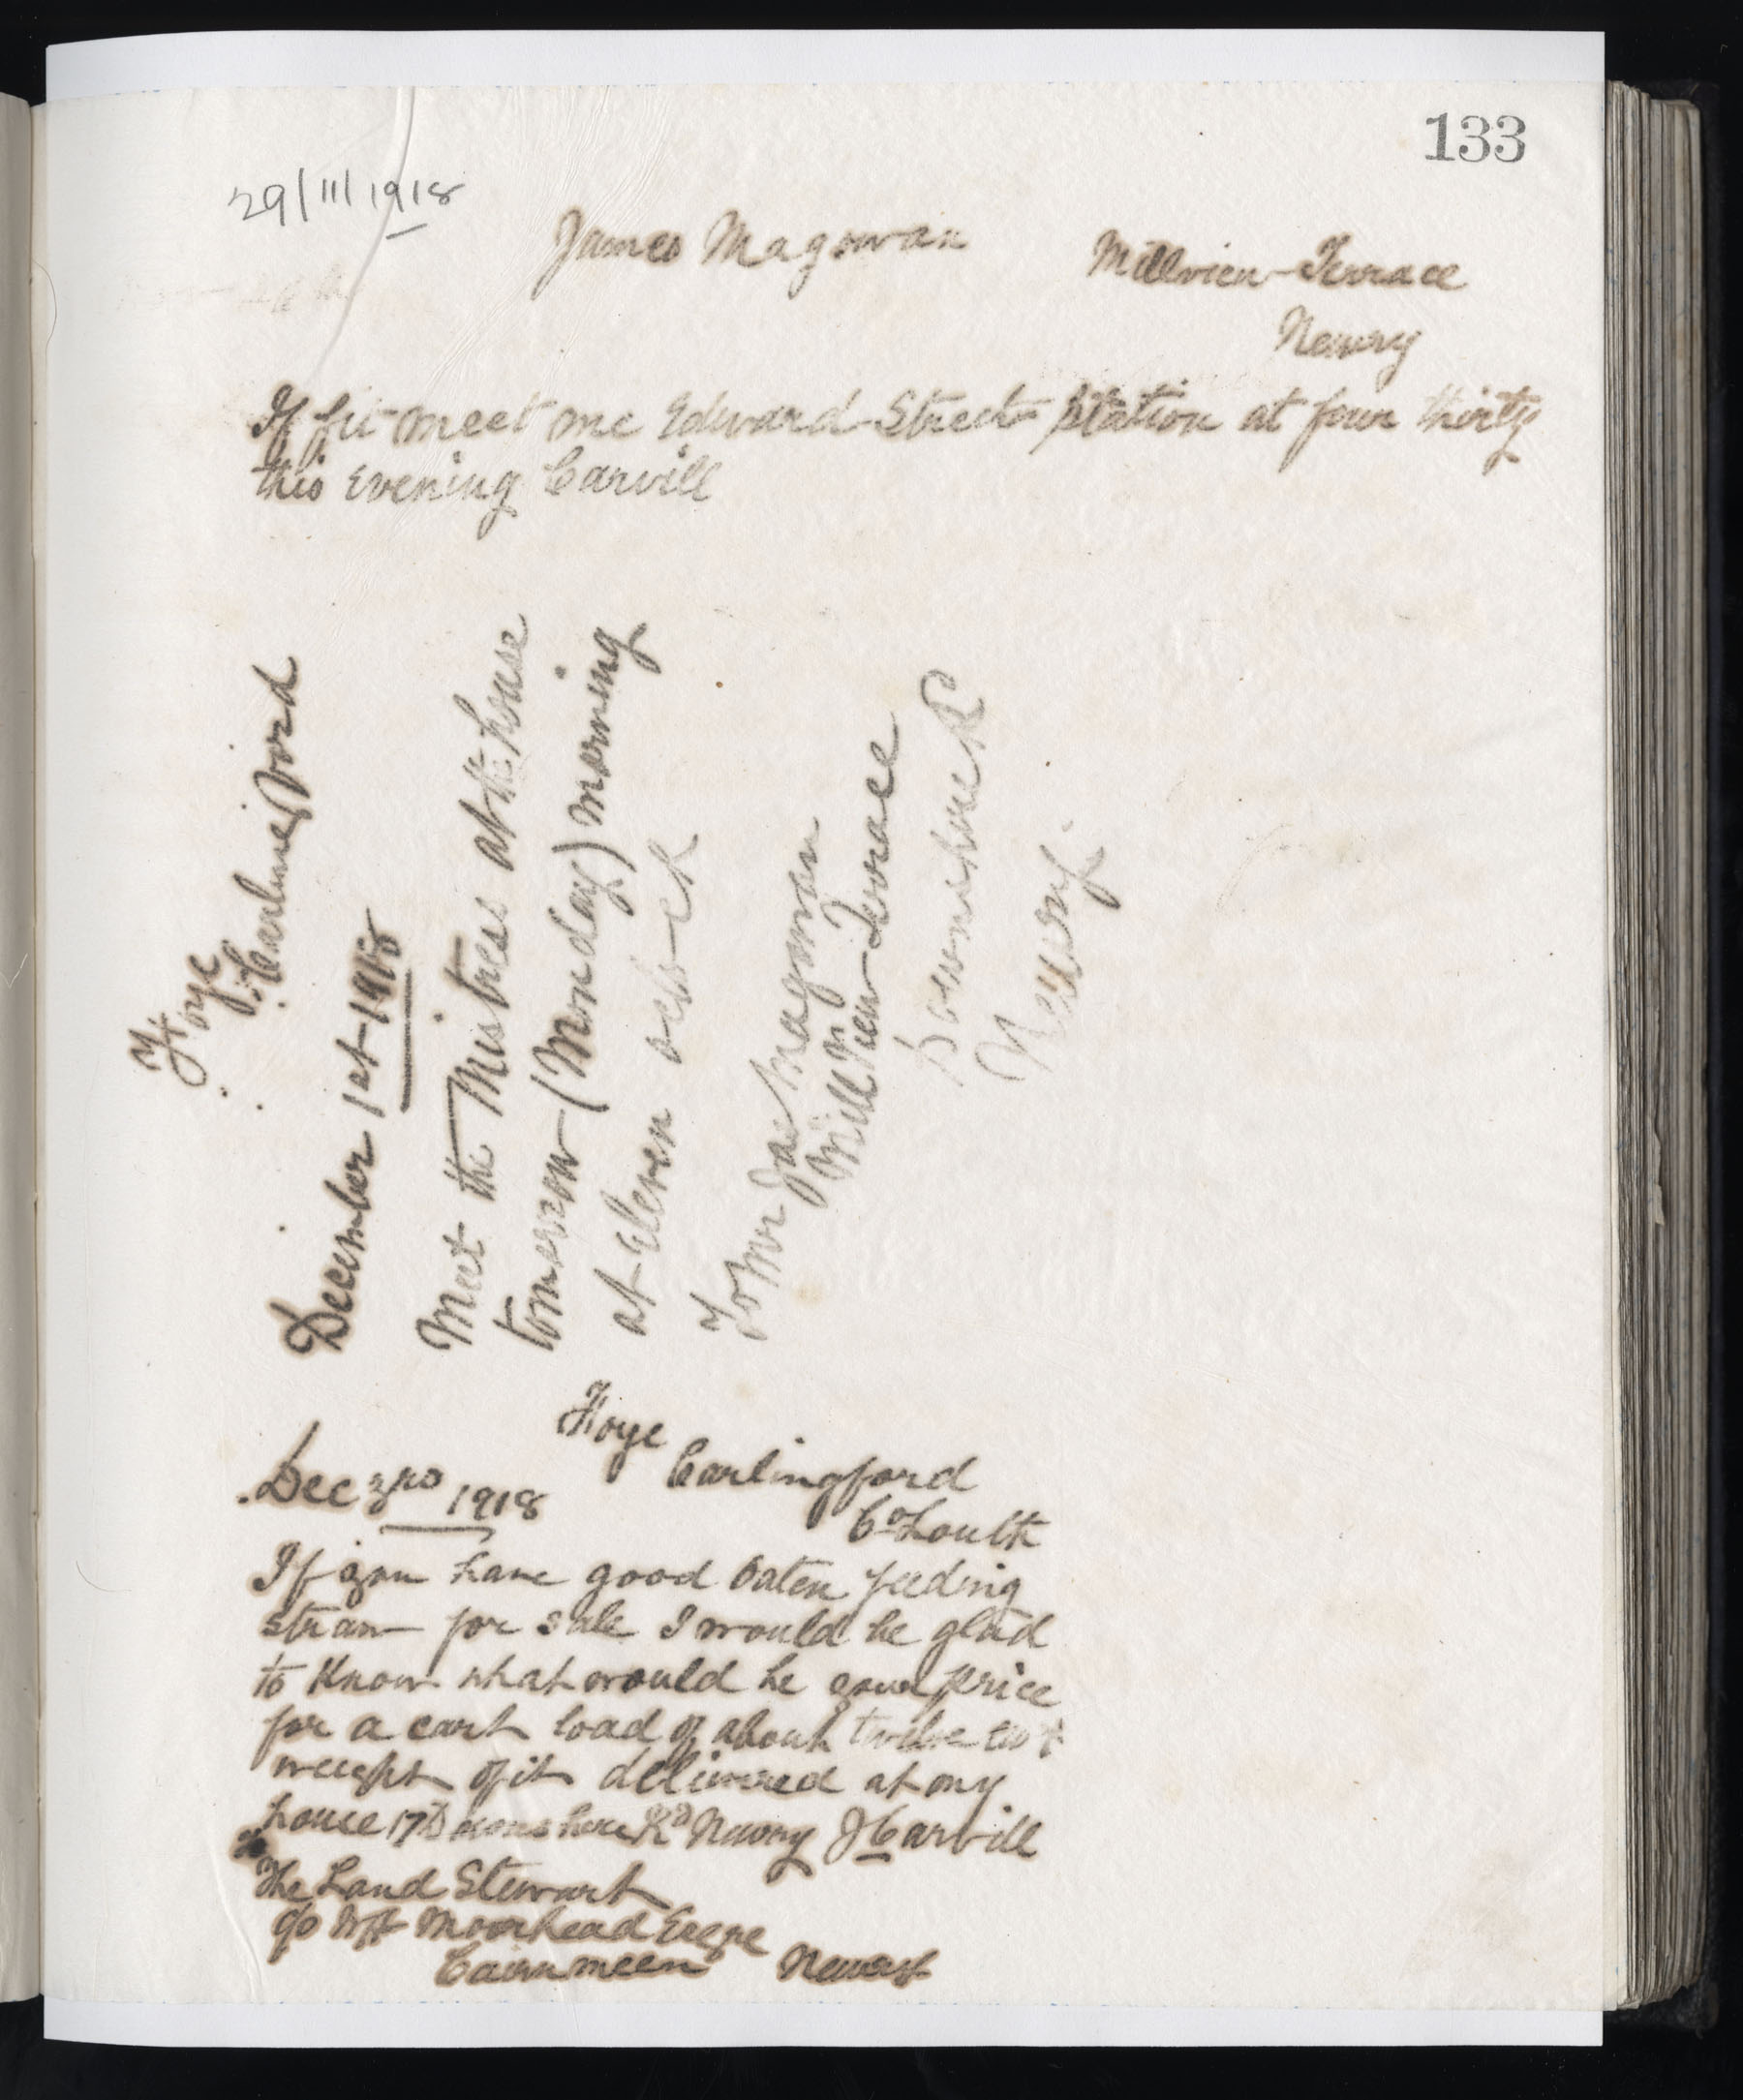 133
29/11/1918
James Magowan
Millview Terrace
Newry
If fit meet me Edward Street Station at four thirty
this Evening Carvill
Fforge
Carlingford
December 1st 1918
Meet the Mistress at the house
tomorrow (Monday) morning
at Eleven oclock
To Mr Jas Magowan
Mill View Terrace
Downshire Rd
Newry.
Carlingford
Dec 3rd 1918
Co Louth
If you have good Oaten feeding
straw for sale I would be glad
to Know what would be your price
for a cart load of about twelve cwt
weight of it delivered at my
house 17 Downshire Rd Newry J Carvill
The Land Stewart
c/o Moorhead Esqre
Cairnmeen Newry